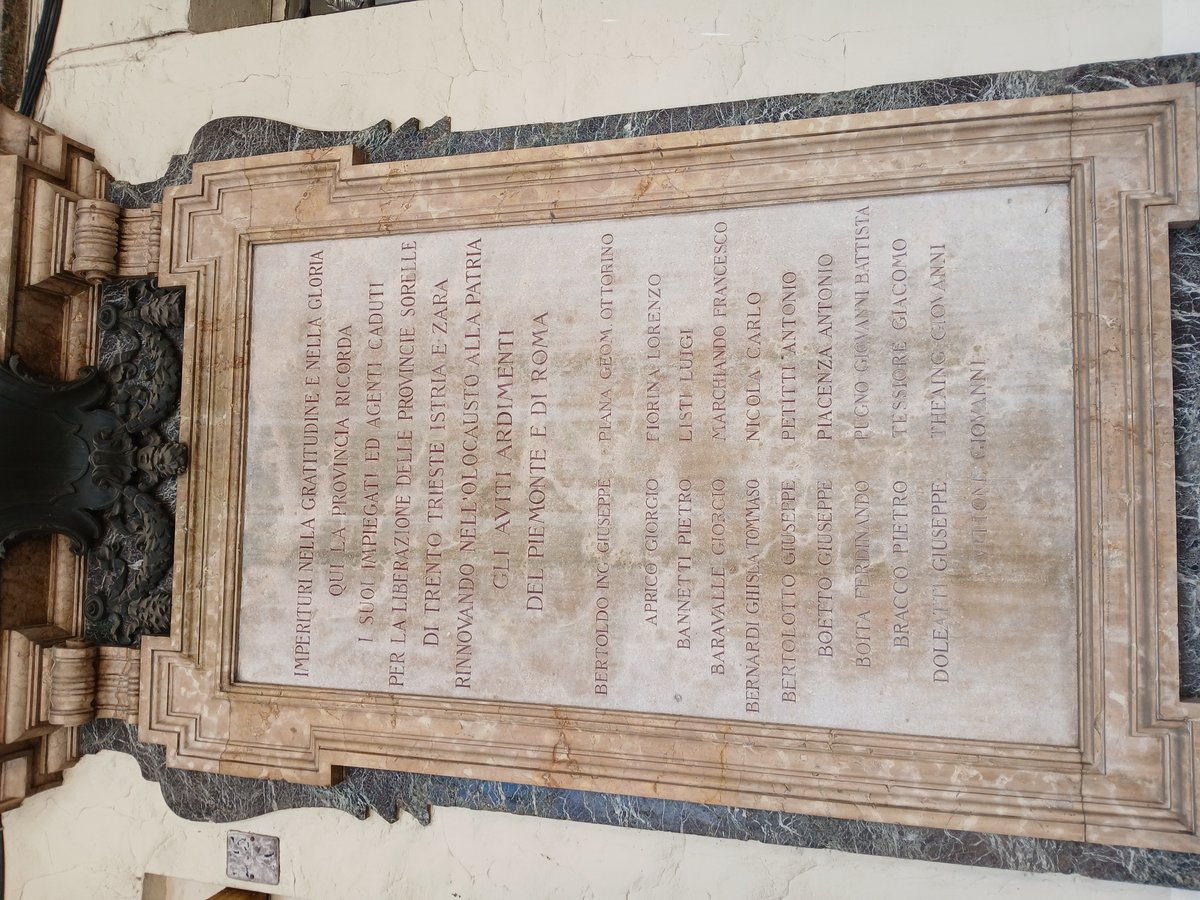 IMPERITURI NELLA GRATITUDINE E NELLA GLORIA
QUI LA PROVINCIA RICORDA
I SUOI IMPIEGATI ED AGENTI CADUTI
PER LA LIBERAZIONE DELLE PROVINCIE SORELLE
DI TRENTO TRIESTE ISTRIA E ZARA
RINNOVANDO NELL'OLOCAUSTO ALLA PATRIA
GLI AVITI ARDIMENTI
DEL PIEMONTE E DI ROMA
BERTOLDO ING. GIUSEPPE PIANA GEOM. OTTORINO
APRICO GIORGIO FIORINA LORENZO
BANNETTI PIETRO LISTI LUIGI
BARAVALLE GIORGIO MARCHIANDO FRANCESCO
BERNARDI GHISLA TOMMASO NICOLA CARLO
BERTOLOTTO GIUSEPPE PETITTI ANTONIO
BOETTO GIUSEPPE PIACENZA ANTONIO
BOITA FERDINANDO PUGNO GIOVANNI BATTISTA
BRACCO PIETRO TESSIORE GIACOMO
DOLEATTI GIUSEPPE THEAING GIOVANNI
VOTTONE GIOVANNI